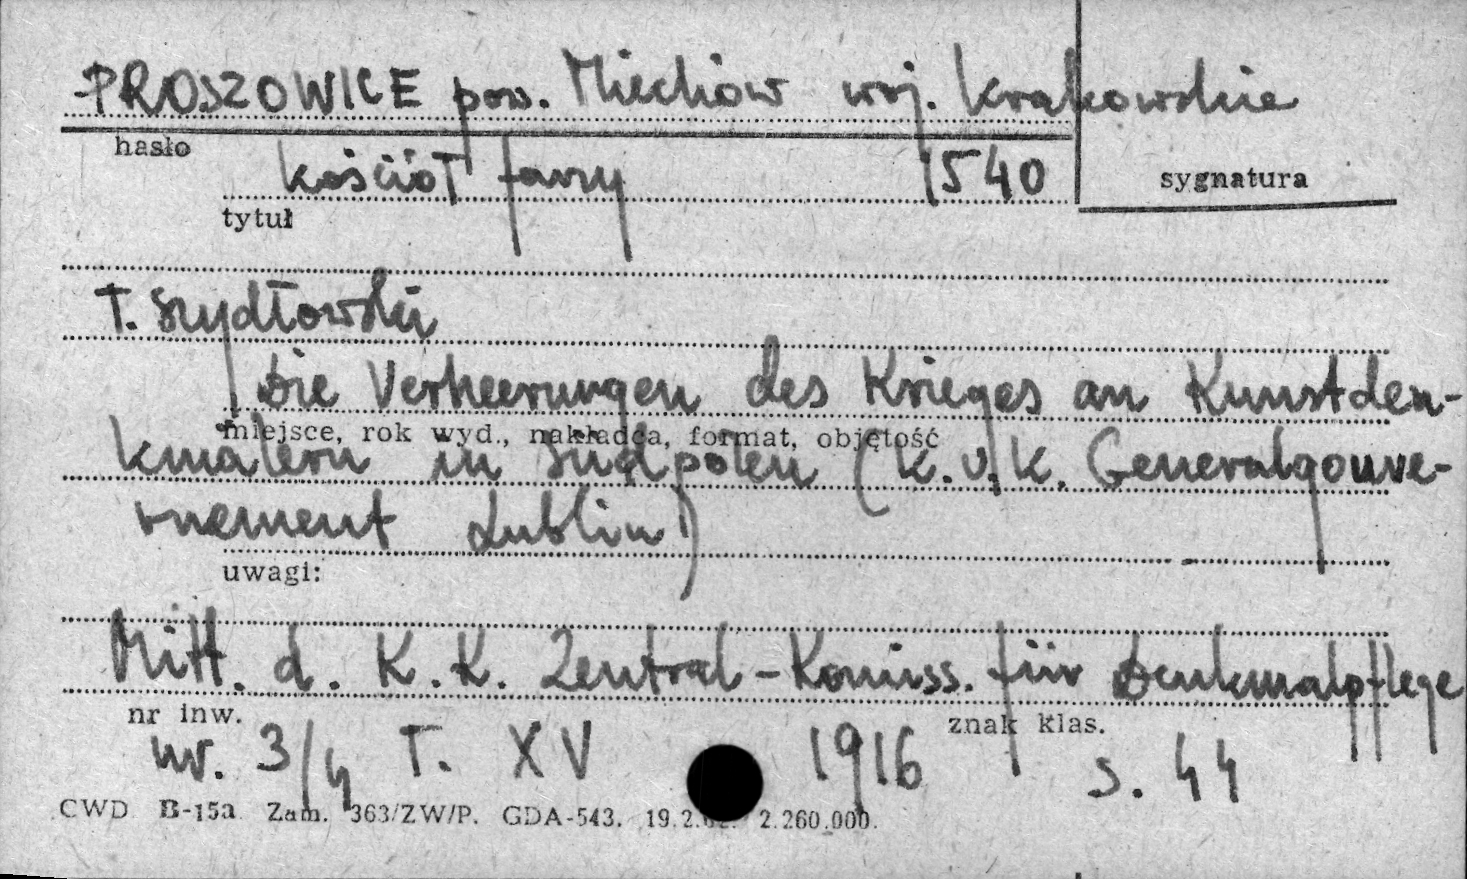 PROSZOWICE pow. Miechów woj. krakowskie
hasło
kościół farny 1540
sygnatura
tytuł
T. Szydłowski
Die Verheerungen des Krieges an Kunstden-
miejsce, rok wyd., nakładca, format, objętość
kmalern in Sudpolen (K.u.K. Generalgouve-
rnement Lublin)
uwagi:
Mitt. d. K.K. Zentral-Komiss. für Denkmalpflege
nr inw.
znak klas.
nr. 3/4 T. XV 1916 s. 44
CWD B-15a Zam. 363/ZW/P. GDA-543. 19.2. 2.260.000.